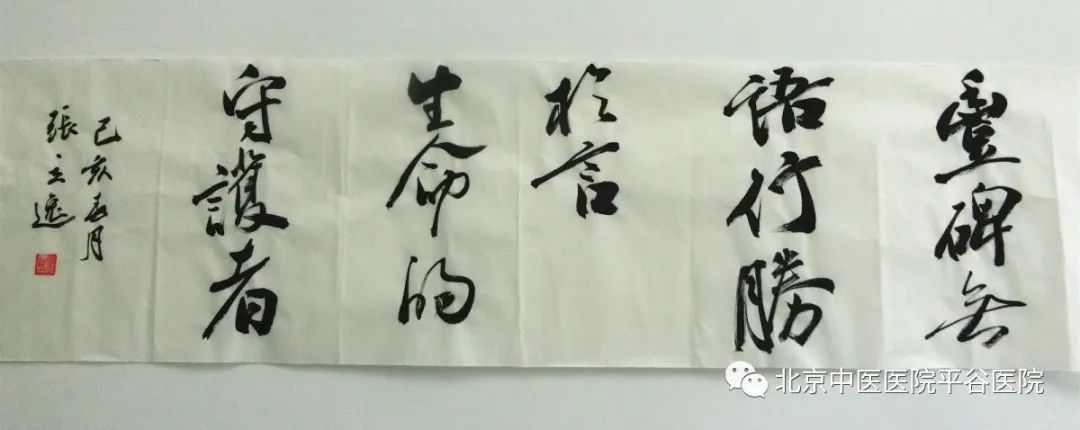 豐碑无
語行勝
於言
生命的
守護者
己亥春月
張立逸
北京中医医院平谷医院